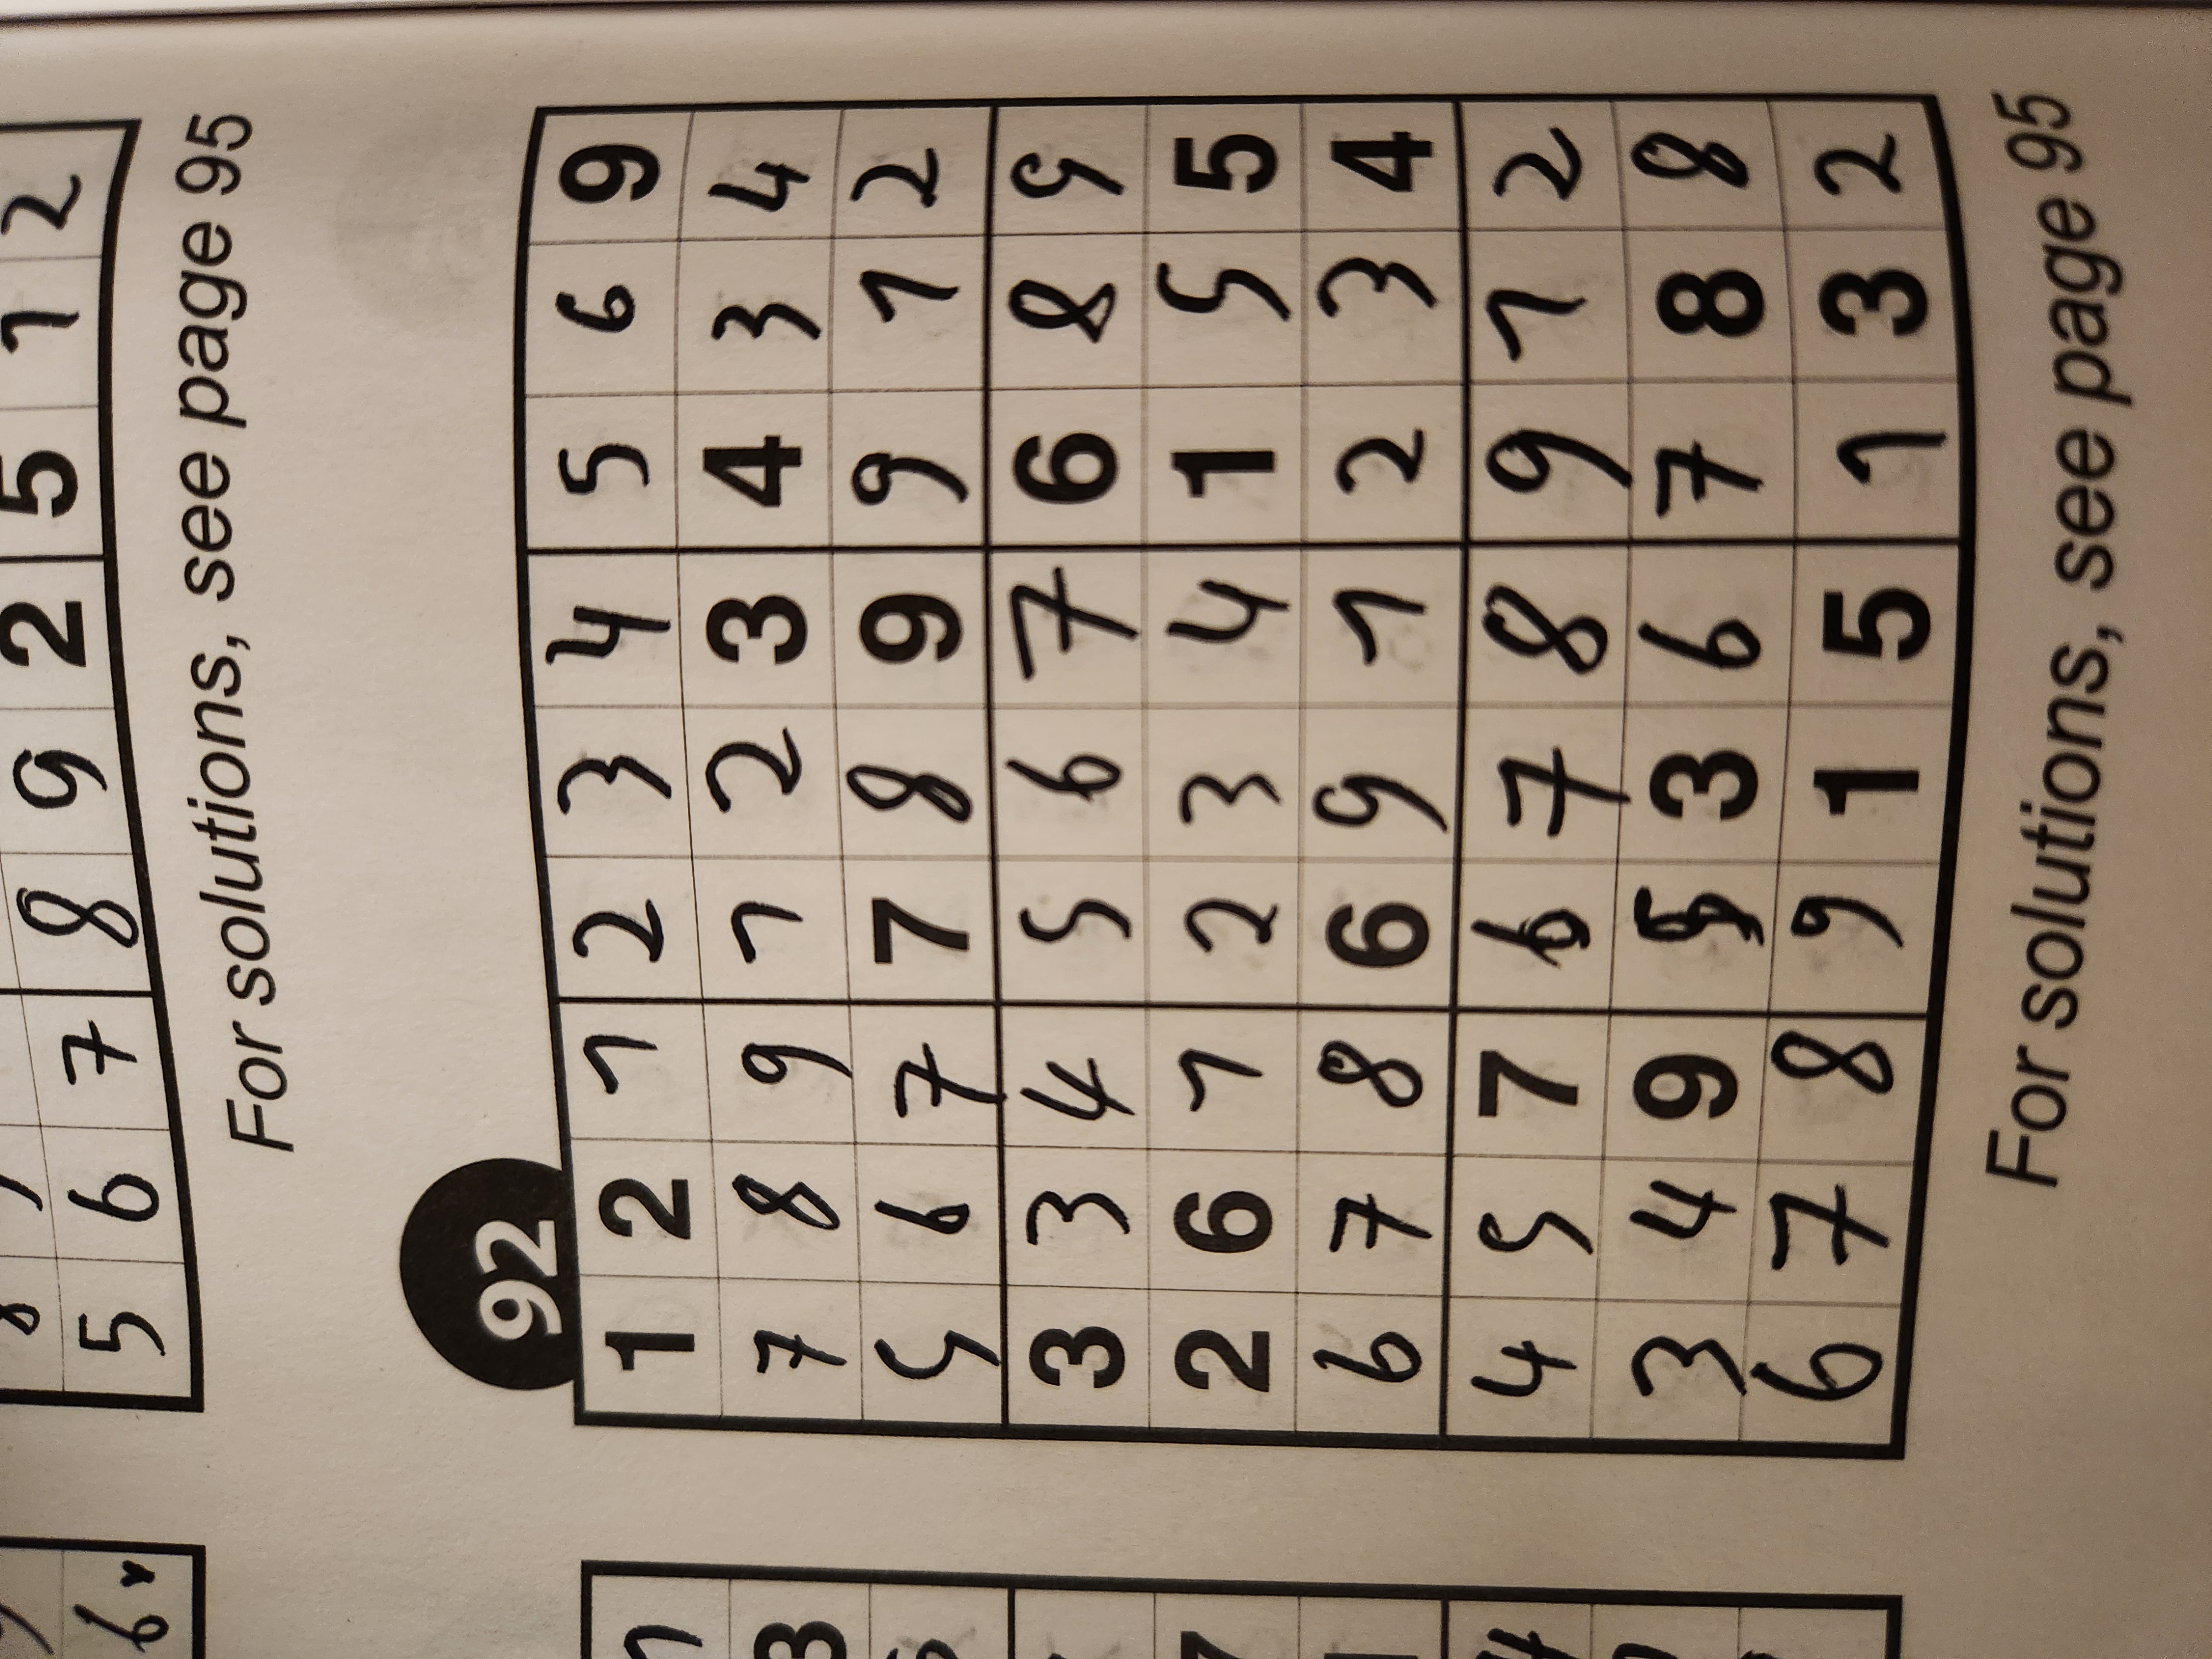 6
5 6 7 8 9 2 5 1 2
For solutions, see page 95
92
1 2 1 2 3 4 5 6 9
7 8 9 1 2 3 4 3 4
5 6 7 7 8 9 9 1 2
3 3 4 5 6 7 6 8 9
2 6 1 2 3 4 1 5 5
6 7 8 6 9 1 2 3 4
4 5 7 6 7 8 9 1 2
3 4 9 5 3 6 7 8 8
6 7 8 9 1 5 1 3 2
For solutions, see page 95